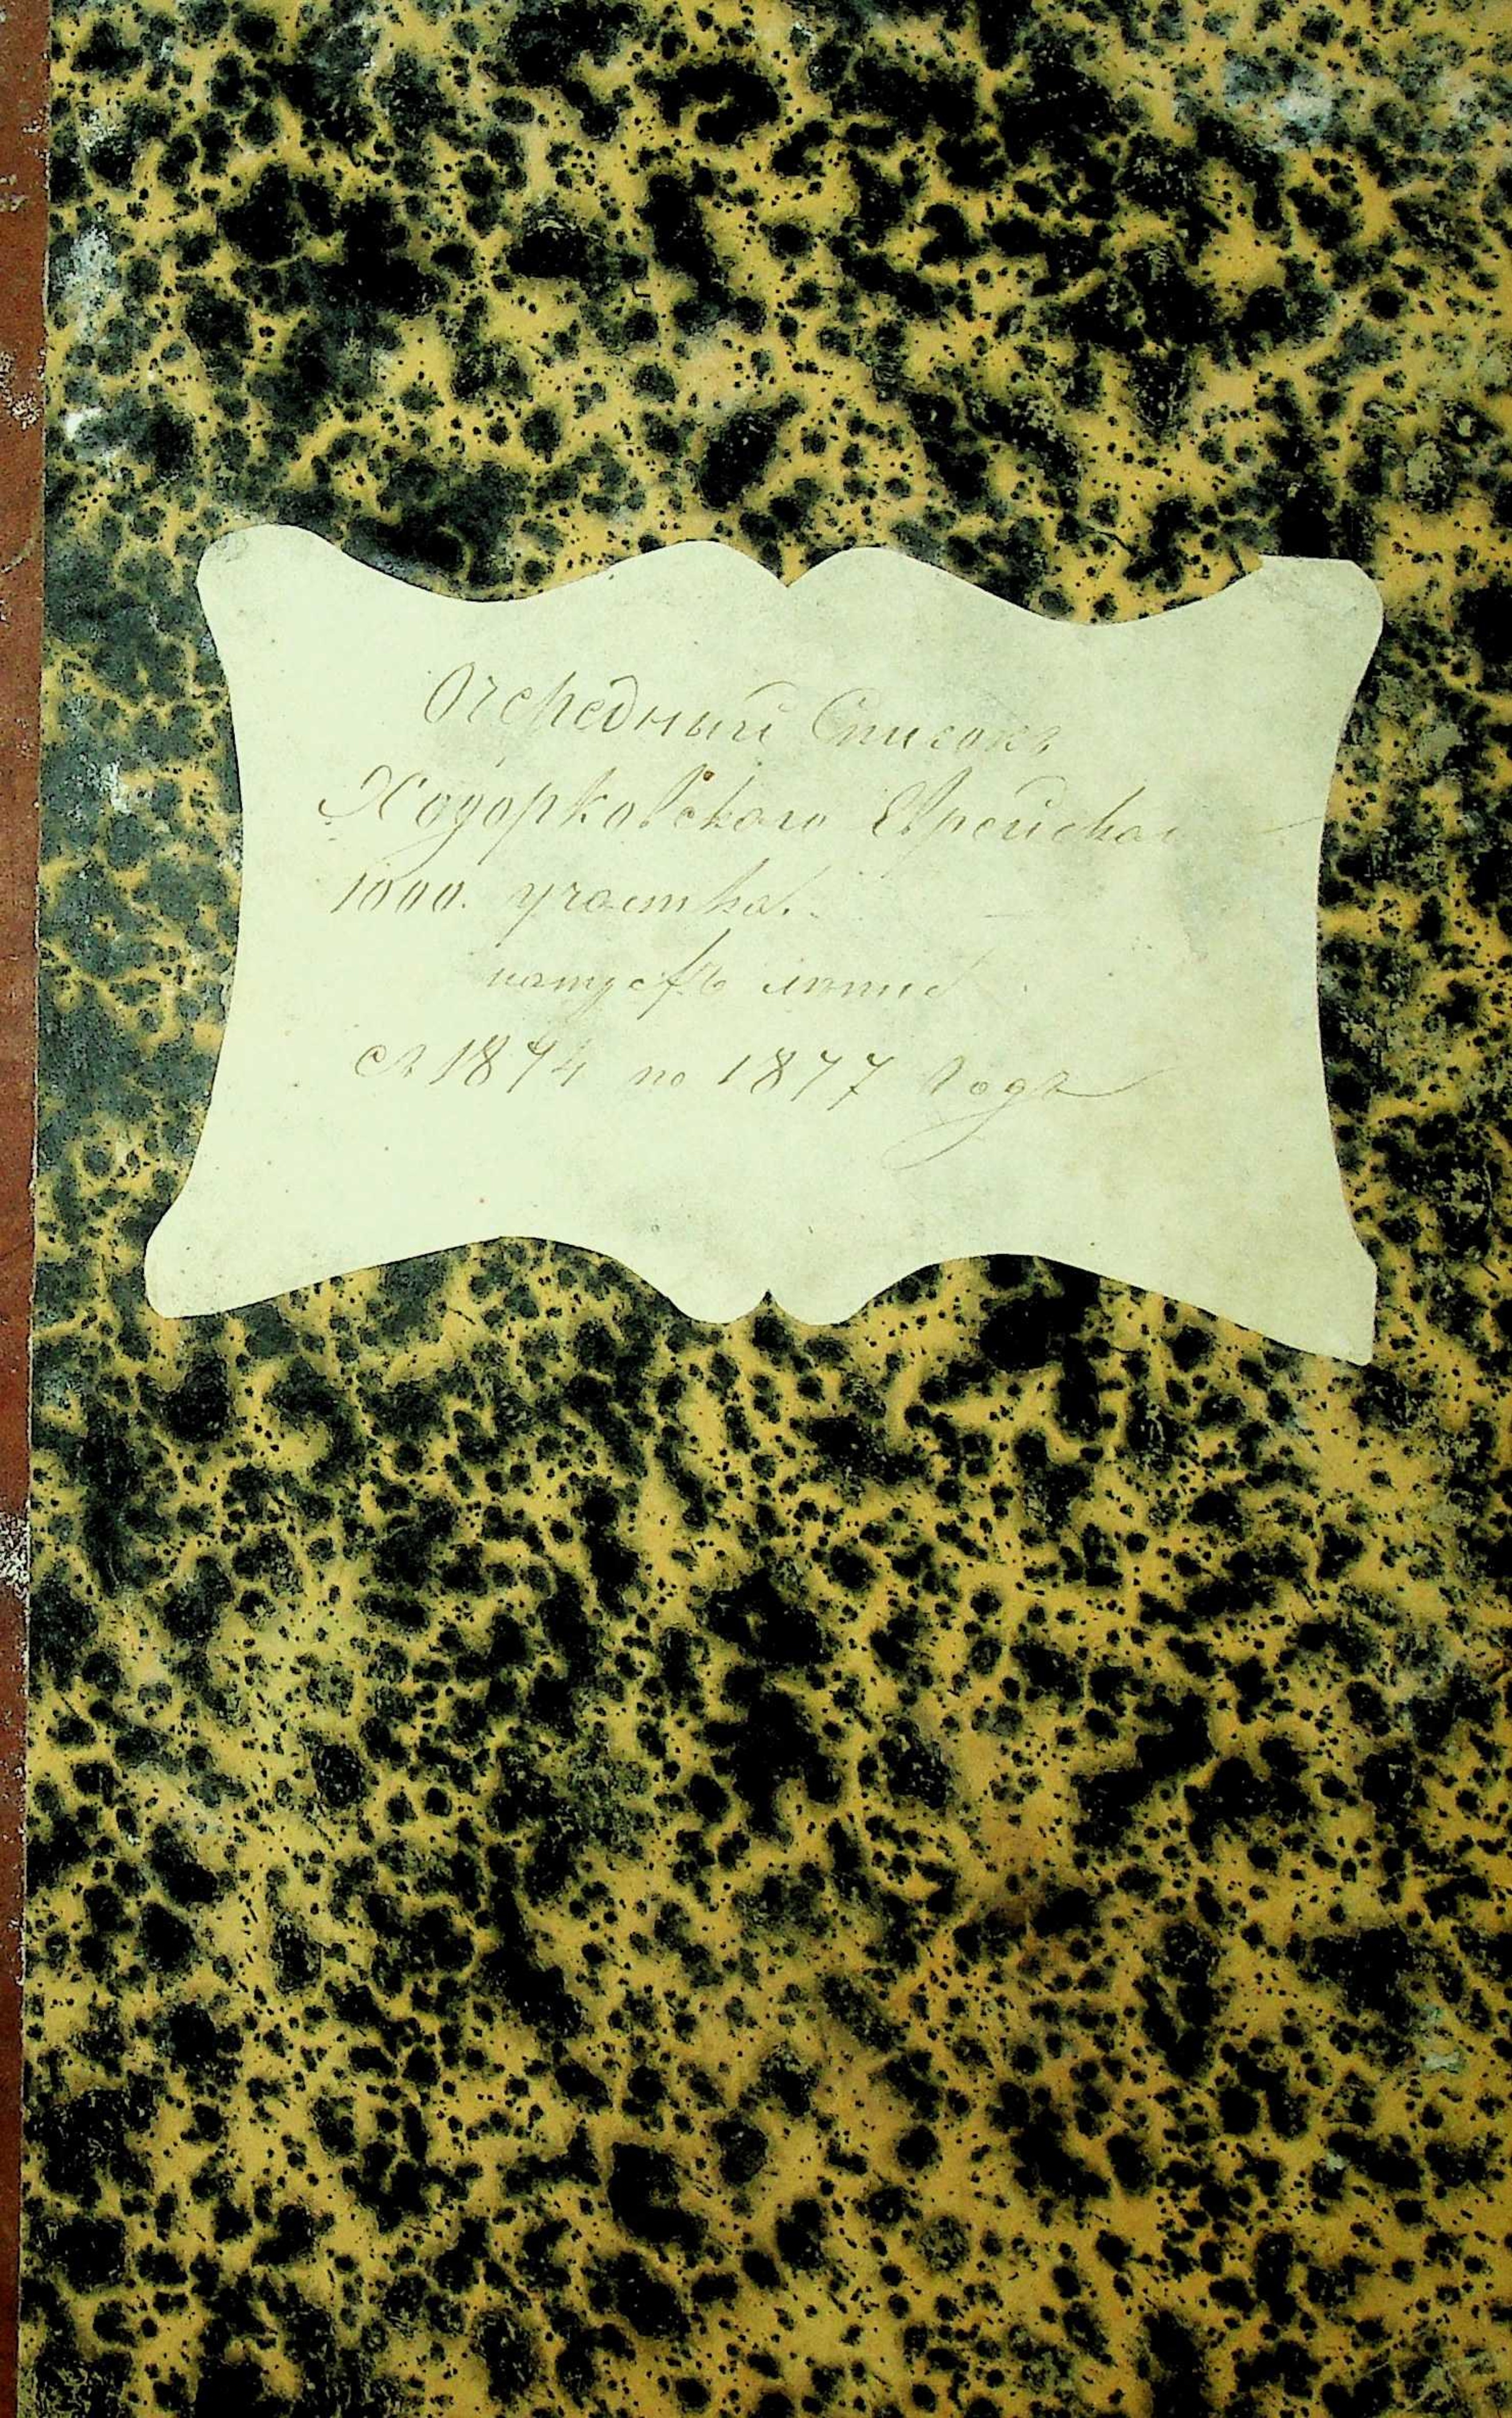 Очередный Списокъ
Ходорковского Еврейскаго
1000. участка.
съ 1874 по 1877 Годъ